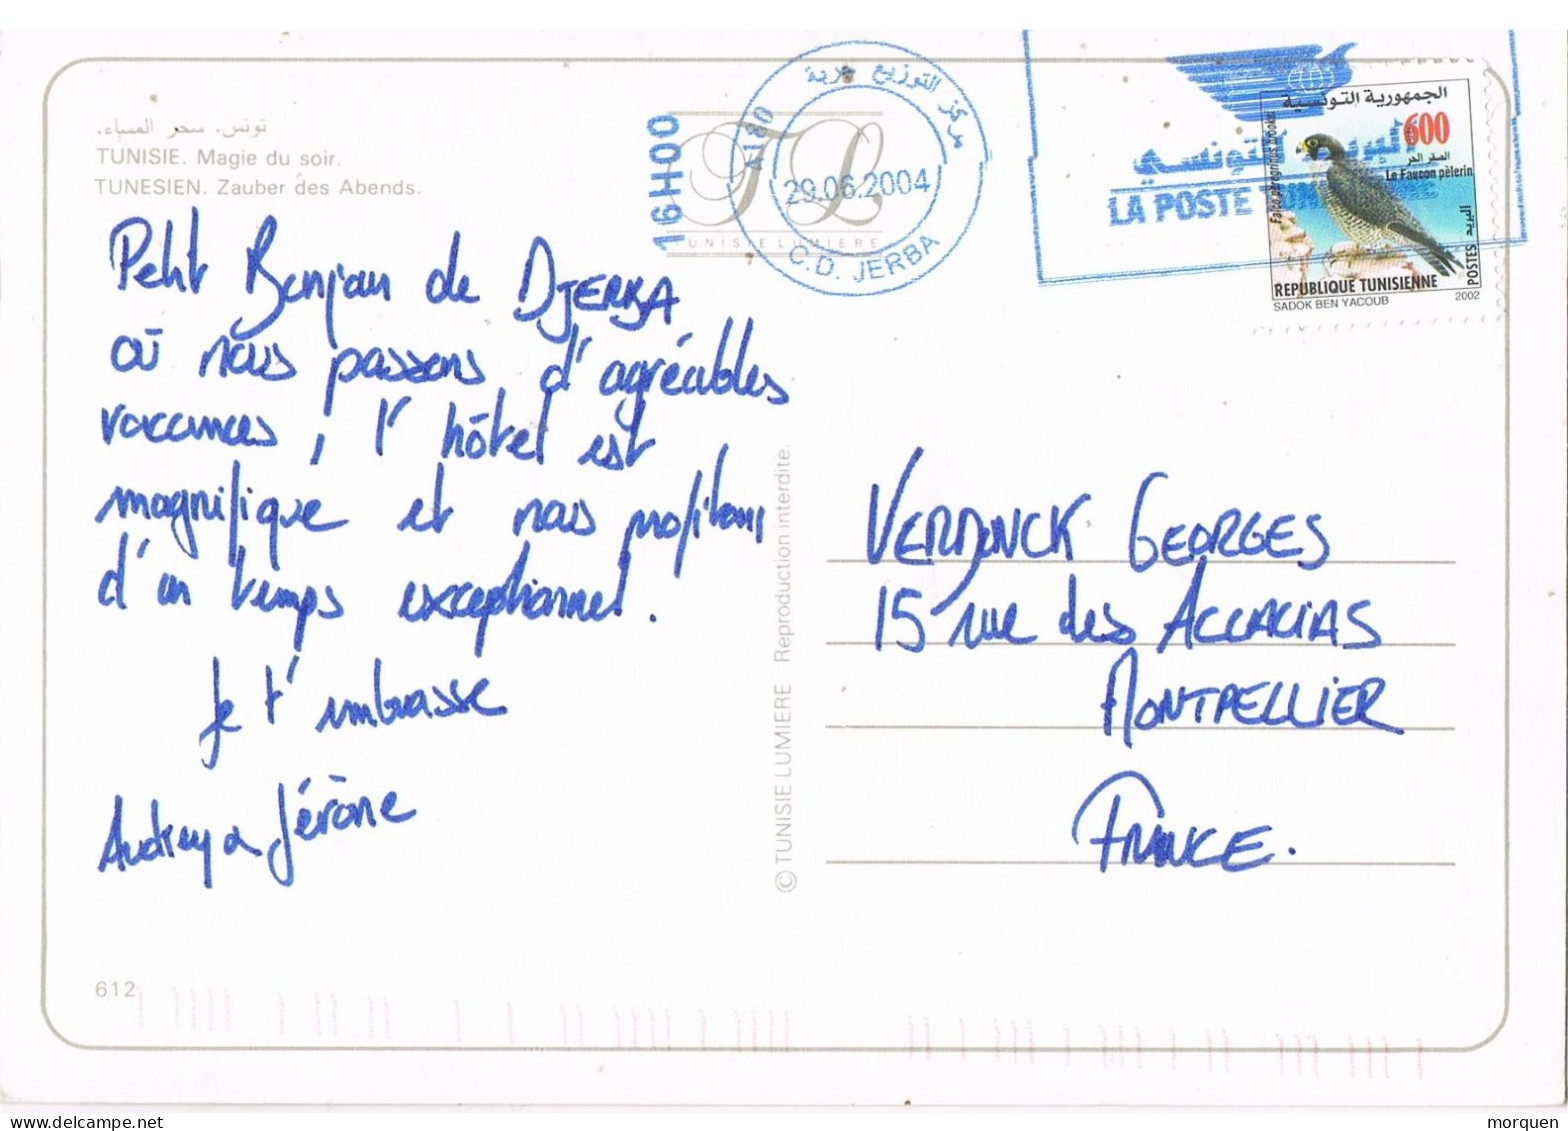 تونس. سحر المساء.
TUNISIE. Magie du soir.
TUNESIEN. Zauber des Abends.
Petit Bonjour de DJERBA
où nous passons d'agréables
vacances, l'hôtel est
magnifique et nous profitons
d'un temps exceptionnel.
Je t'embrasse
Audrey & Jérôme
612
16H00
TL
TUNISIE LUMIERE
مركز التوزيع جربة
4180
29.06.2004
C.D. JERBA
البريد التونسي
LA POSTE TUN
الجمهورية التونسية
600
الصقر الحر
Le Faucon pèlerin
Falco peregrinus brookei
البريد POSTES
REPUBLIQUE TUNISIENNE
SADOK BEN YACOUB 2002
© TUNISIE LUMIERE Reproduction interdite.
VERDONCK GEORGES
15 rue des ACCACIAS
MONTPELLIER
FRANCE.
morquen